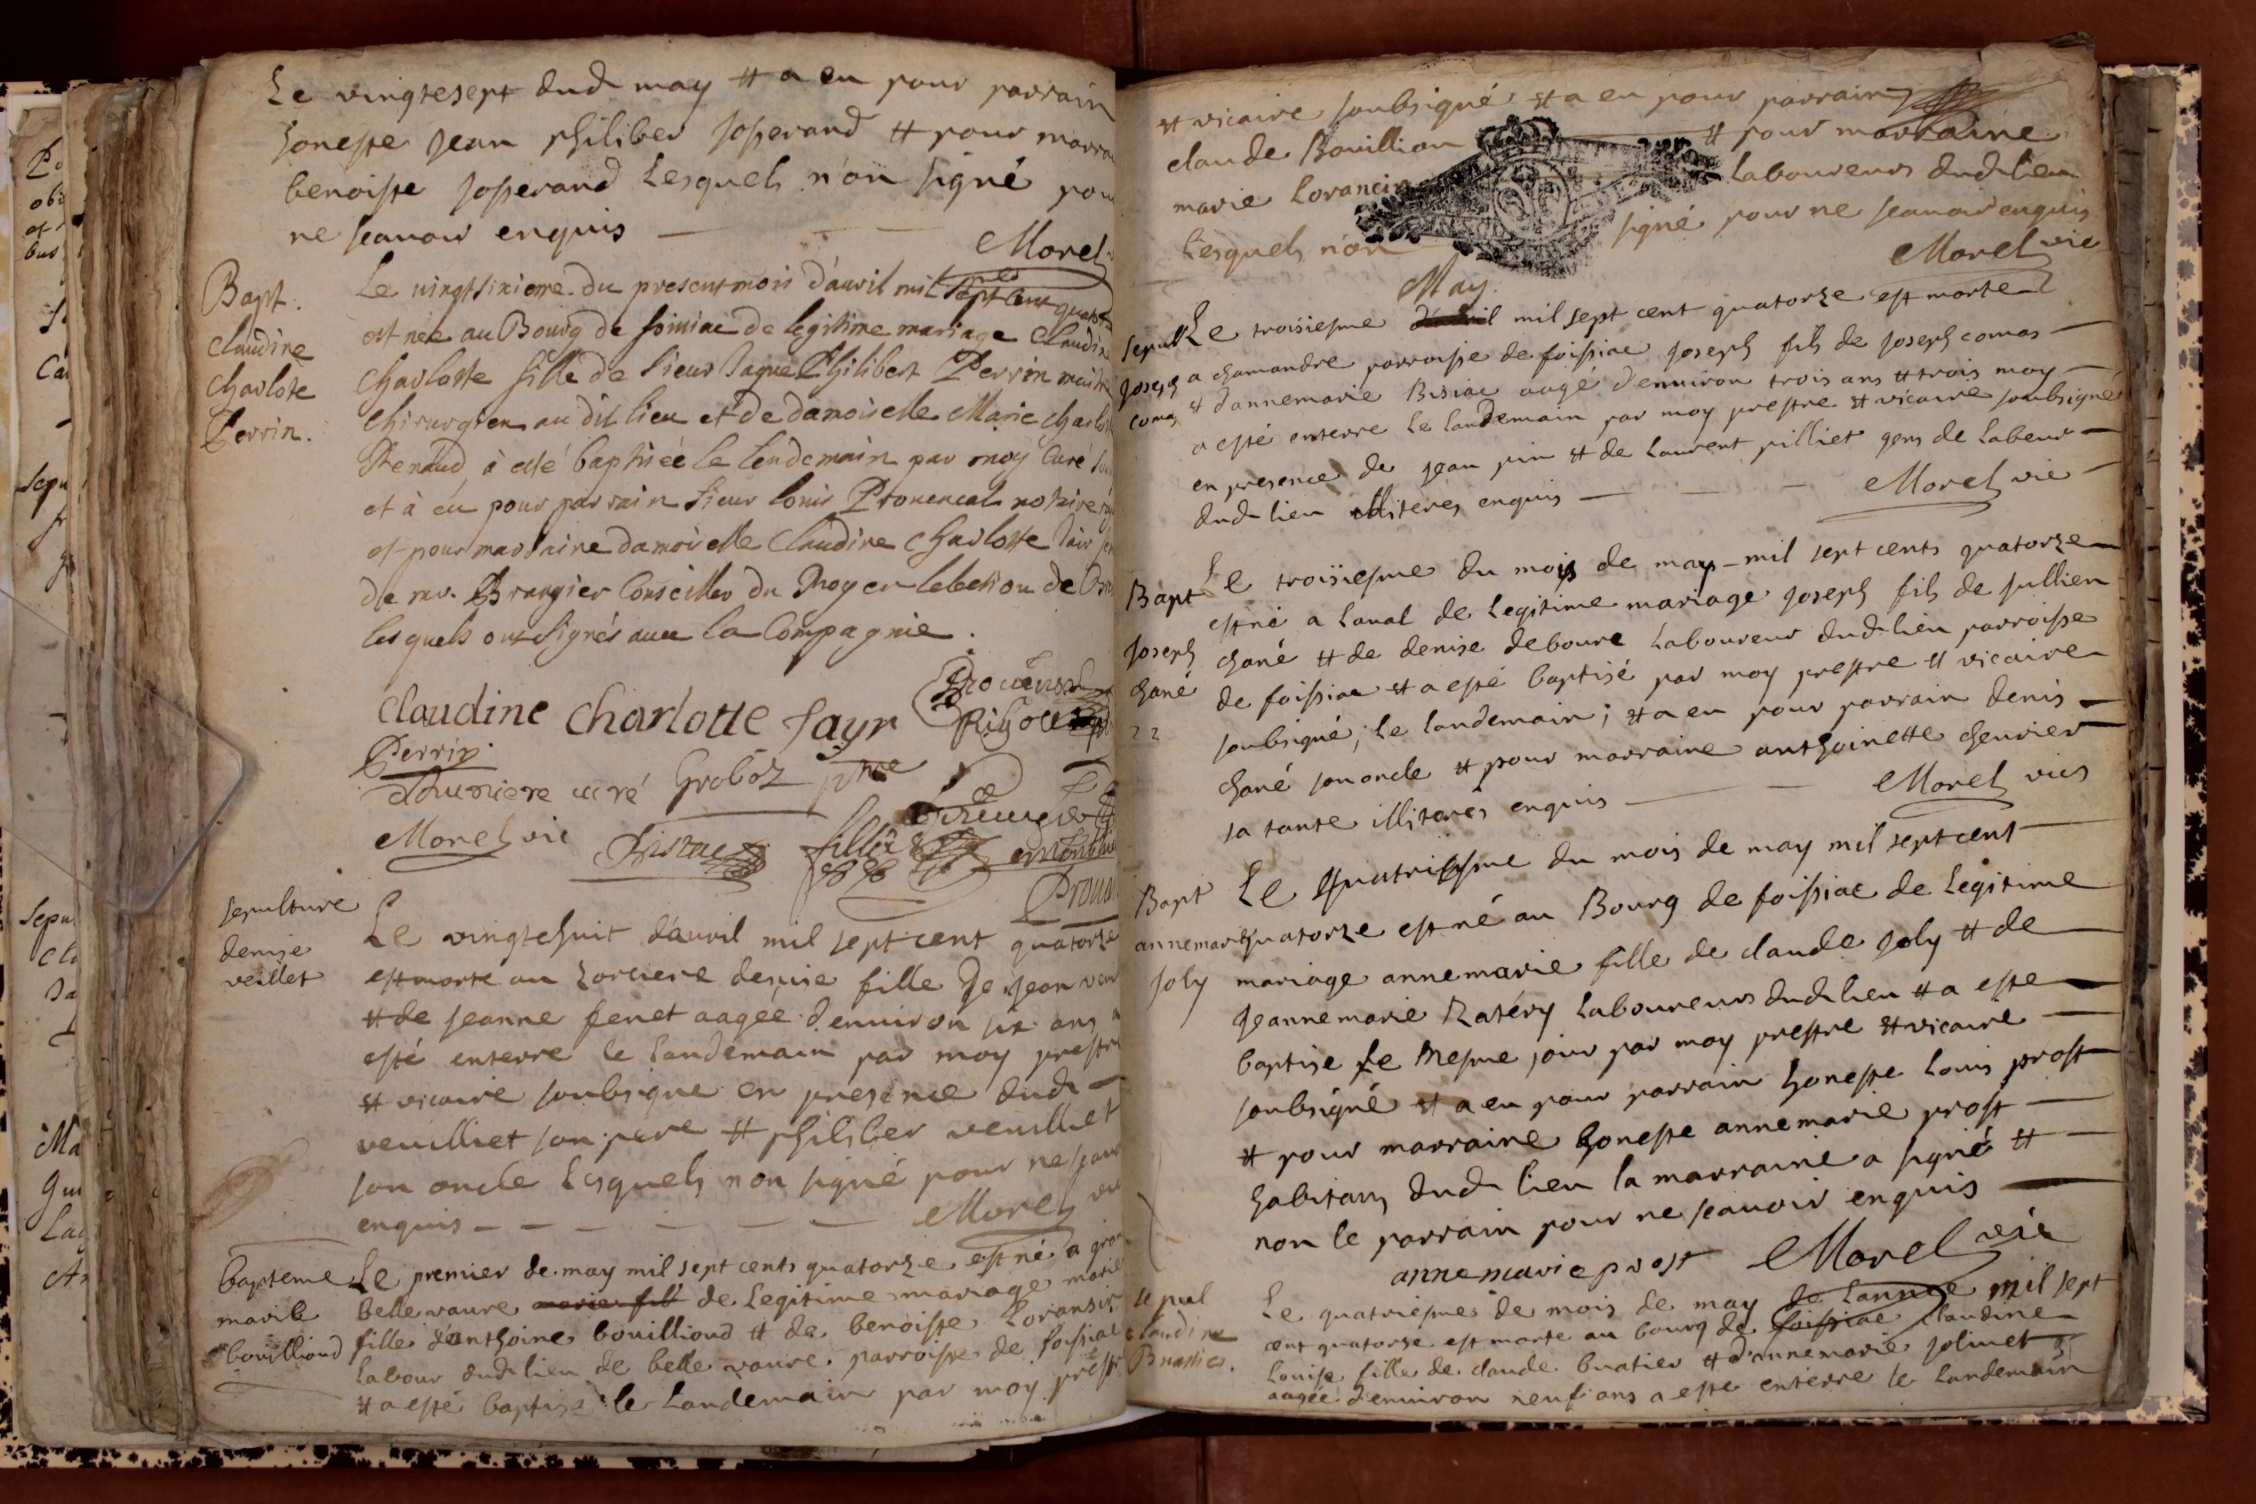 Le vingtesept dud may et a eu pour parrain
honeste jean philiber josserand et pour marra
benoiste josserand Lesquels n'on signé pour
ne scauoir enquis
Morel
Bapt.
claudine
charlote
Perrin.
Le uingt sixieme du present mois d'auril mil sept cent quato
est née au Bourg de foissiac de legitime mariage Claudin
Charlotte fille de sieur Jaque Philibert Perrin maitre
chirurgien au dit lieu et de damoiselle Marie charlo
Renaud, à esté baptisée le lendemain par moy Curé
et à eu pour parrain sieur louis Prouencal notaire
et pour marraine damoiselle Claudine Charlotte
de mr. Brangier Conseiller du Roy en lelection de
lesquels ont signés auec la Compagnie.
Claudine Charlotte fayr
Perrin
curé Groboz
Morel vic
sepulture
denise
veillet
Le vingtehuit d'auril mil sept cent quatorze
est morte au denise fille de jean
et de jeanne feuet aagée d'enuiron six ans a
esté enterre le landemain par moy prestr
et vicaire soubsigne en presence dud
veuilliet son pere et philiber veuilliet
son oncle Lesquels non signé pour ne scau
enquis
Morel vic
bapteme
marie
bouilliond
Le premier de may mil sept cents quatorze est né a gran
belle vaure marie fill de Legitime mariage marie
fille d'anthoine bouilliond et de benoiste Loransin
labour dud lieu de belle vaure parroisse de foissiac
et a esté baptise le Landemain par moy prestr
et vicaire soubsigné et a eu pour parrain
claude Bouillion et pour marraine
marie Lorancin Laboureurs dud lieu
Lesquels n'on signé pour ne scauoir enquis
Morel vic
May
sepul
joseph
comas
Le troisiesme d'auril mil sept cent quatorze est morte
a chamandre parroisse de foissiac joseph fils de joseph comas
et d'annemarie Bisiac aagé d'enuiron trois ans et trois moy
a esté enterre Le landemain par moy prestre et vicaire soubsigné
en presence de jean pin et de Laurent pilliet gens de Labeur
dud lieu illiteres enquis
Morel vic
Bapt
joseph
chané
22
Le troisiesme du mois de may mil sept cents quatorze
est né a Laual de Legitime mariage joseph fils de jullien
chané et de denise deboure Laboureur dud lieu parroisse
de foissiac et a esté baptisé par moy prestre et vicaire
soubsigné, le landemain; et a eu pour parrain denis
chané son oncle et pour marraine anthoinette cheurier
sa tante illiterés enquis
Morel vics
Bapt
annemarie
joly
Le quatriesme du mois de may mil sept cent
quatorze est né au Bourg de foissiac de Legitime
mariage annemarie fille de claude joly et de
jeannemarie Ratéry Laboureurs dud lieu et a esté
baptise Le mesme jour par moy prestre et vicaire
soubsigné et a eu pour parrain honeste Louis prost
et pour marraine honeste annemarie prost
habitans dud lieu la marraine a signé et
non le parrain pour ne scauoir enquis
annemarie prost Morel vic
sepul
claudine
Buatier.
Le quatriesme de mois de may de Lannee mil sept
cent quatorze est morte au bourg de foissiac claudine
Louise fille de claude buatier et d'annemarie joliuet
aagée d'enuiron neuf ans a esté enterre le Landemain